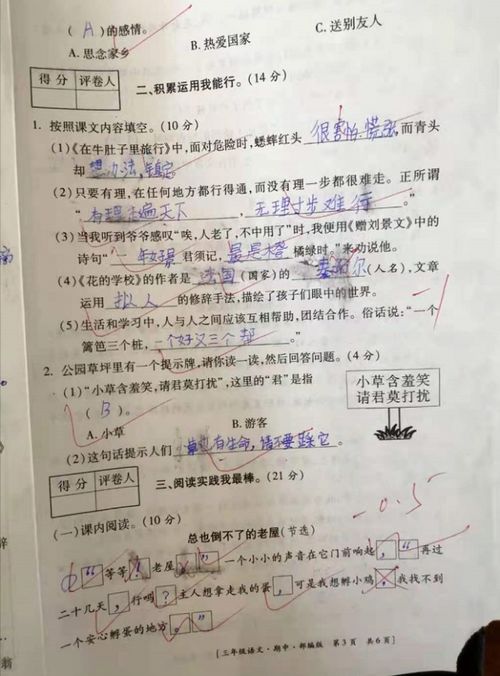 ( A )的感情。
A. 思念家乡 B. 热爱国家 C. 送别友人
得分 评卷人
二、积累运用我能行。(14 分)
1. 按照课文内容填空。(10 分)
(1)《在牛肚子里旅行》中,面对危险时,蟋蟀红头 很害怕、慌张 而青头
却 想办法,镇定
(2)只要有理,在任何地方都行得通,而没有理一步都很难走。正所谓
“ 有理走遍天下 , 无理寸步难行 。”
(3)当我听到爷爷感叹“唉,人老了,不中用了”时,我便用《赠刘景文》中的
诗句“ 一年好景 君须记, 最是橙 橘绿时。”来劝说他。
(4)《花的学校》的作者是 法国 (国家)的 泰戈尔 (人名),文章
运用 拟人 的修辞手法,描绘了孩子们眼中的世界。
(5)生活和学习中,人与人之间应该互相帮助,团结合作。俗话说:“一个
篱笆三个桩, 一个好汉三个帮 。”
2. 公园草坪里有一个提示牌,请你读一读,然后回答问题。(4 分)
(1)“小草含羞笑,请君莫打扰”,这里的“君”是指
( B )。
A. 小草 B. 游客
小草含羞笑
请君莫打扰
(2)这句话提示人们 草也有生命,请不要踩它 。
得分 评卷人
三、阅读实践我最棒。(21 分)
-0.5
(一)课内阅读。(10 分)
总也倒不了的老屋(节选)
“ 等等 ! 老屋 ” 一个小小的声音在它门前响起 , “ 再过
二十几天 , 行吗 ? 主人想拿走我的蛋 , 可是我想孵小鸡 , 我找不到
一个安心孵蛋的地方 。 ”
[三年级语文·期中·部编版 第 3 页 共 6 页]